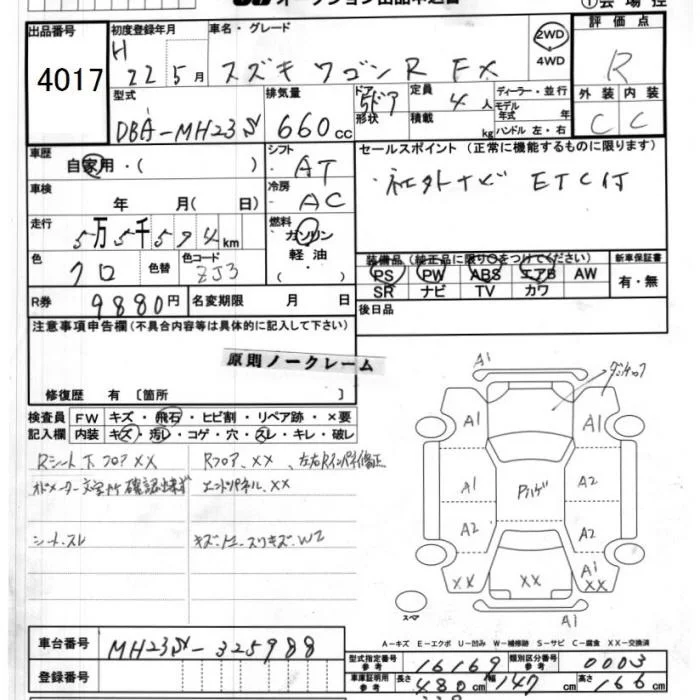 オークション出品申込書 ①会場控
出品番号 初度登録年月 車名・グレード 評価点
4017 H 22 5月 スズキ ワゴンR FX 2WD 4WD R
型式 排気量 ドア 形状 5ドア 定員 4人 積載 kg ディーラー・並行 モデル年式 年 ハンドル 左・右 外装 内装
DBA-MH23S 660cc C C
車歴 自家用・( ) シフト AT セールスポイント (正常に機能するものに限ります)
車検 年 月( 日) 冷房 AC 社外ナビ ETC付
走行 5万5千594km 燃料 ガソリン 軽油 ・( )
色 クロ 色替 色コード ZJ3 装備品 (純正品に限り○をつけてください) 新車保証書
PS PW ABS エアB AW 有・無
SR ナビ TV カワ
R券 9880円 名変期限 月 日 後日品
注意事項申告欄(不具合内容等は具体的に記入して下さい)
原則ノークレーム
修復歴 有 〔箇所 〕
検査員 FW キズ・飛石・ヒビ割・リペア跡・×要
記入欄 内装 キズ・汚レ・コゲ・穴・スレ・キレ・破レ
Rシート下フロアXX Rフロア、XX、左右Rインパネ修正
オドメーター 確認出来ず エンドパネル、XX
シート、スレ キズ・ W2
A1
A1 A1
A1 A2
A2 A2
XX XX A1 XX
A1
スペア
A-キズ E-エクボ U-凹み W-補修跡 S-サビ C-腐食 XX-交換済
車台番号 MH23S-325988
型式指定番号 参考 16169 類別区分番号 参考 0003
登録番号 車庫証明用 参考 長さ cm 幅 147cm 高さ 166cm